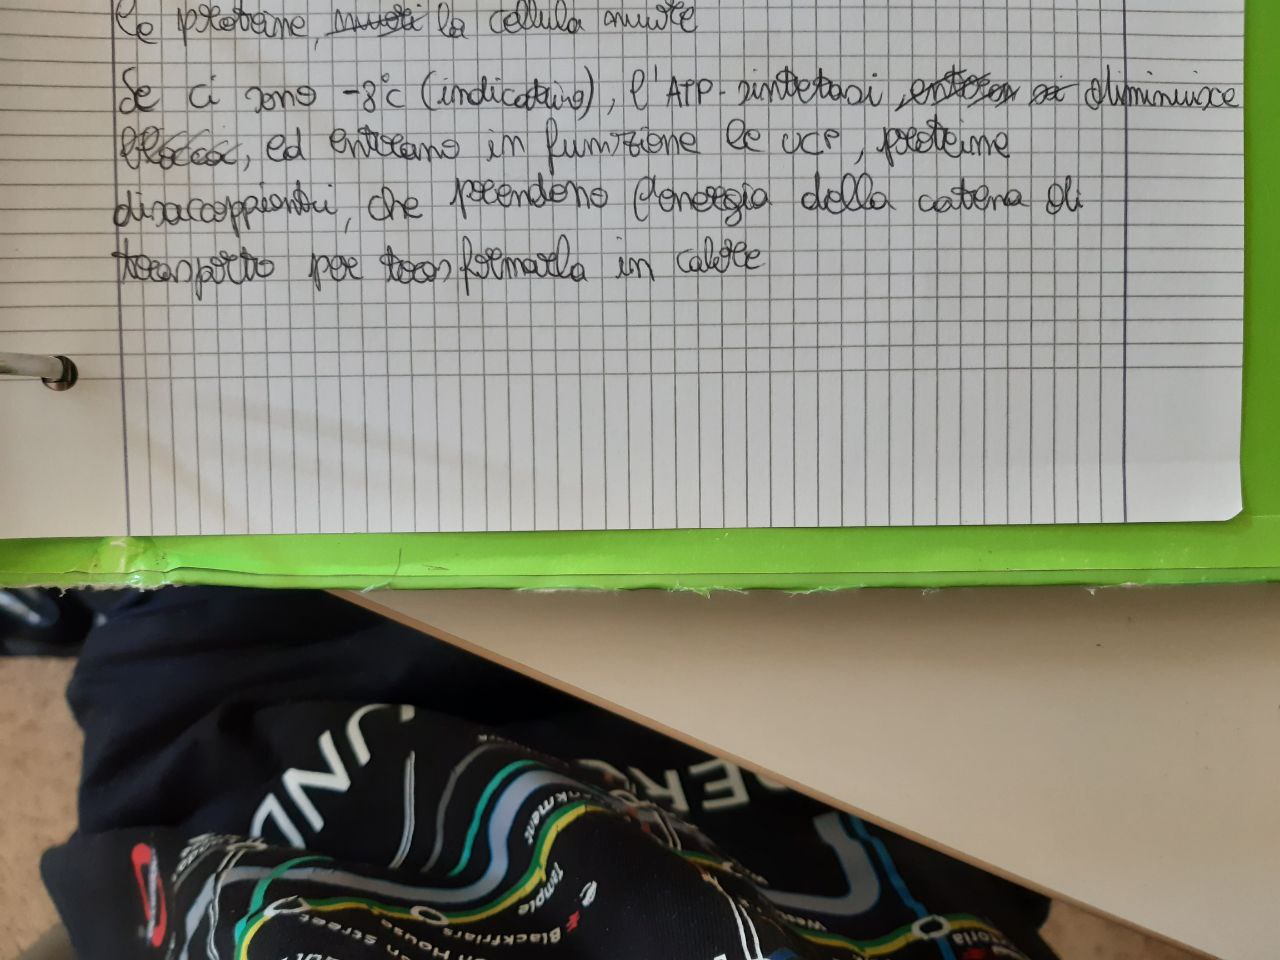 le proteine, la cellula muore
Se ci sono -8°C (indicativo), l'ATP-sintetasi, diminuisce
blocca, ed entrano in funzione le UCP, proteine
disaccoppianti, che prendono l'energia della catena di
trasporto per trasformarla in calore
UND
ER
nkment
Temple
Blackfriars
n House
n Street
West
toria